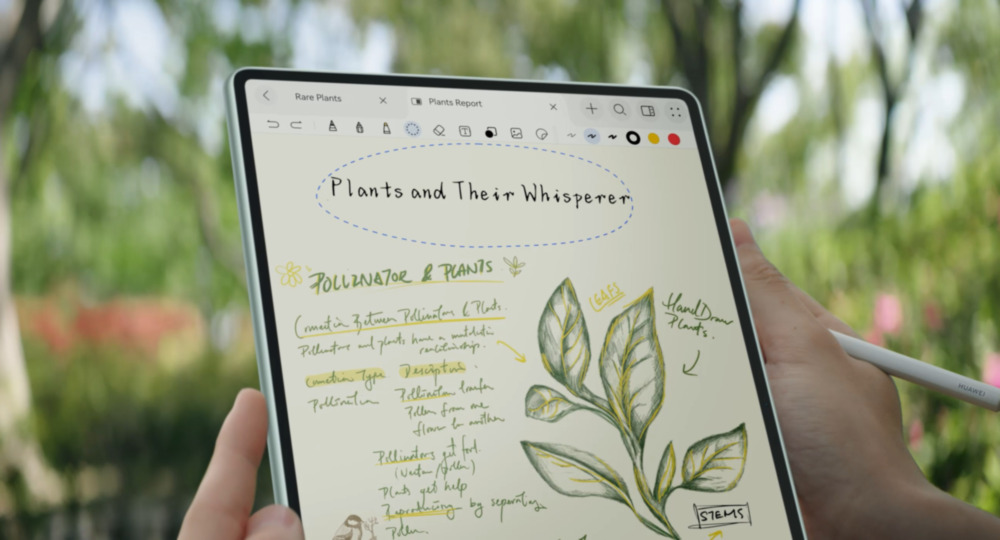 Rare Plants
Plants Report
Plants and Their Whisperer
POLLINATOR & PLANTS
LEAFS
Hand Draw
Plants.
Between Pollinators & Plants.
Pollinators and plants have a
relationship.
Type Description
Pollination Pollinator transfer
Pollen from one
flower to another
Pollinators get food.
(Nectar/pollen)
Plants get help
Reproducing by separating
Pollen.
STEMS
HUAWEI